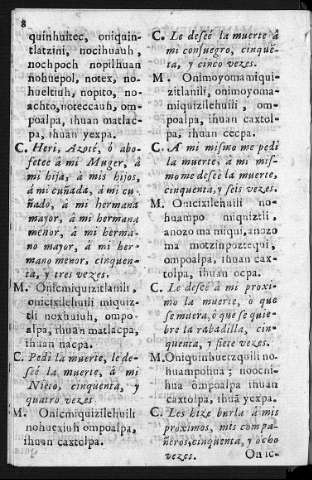 8
quinhuitec, oniquin-
tlatzini, nocihuauh,
nochpoch nopilhuan
nohuepol, notex, no-
hueltiuh, nopito, no-
achto, noteccauh, om-
poalpa, ihuan matlac-
pa, ihuan yexpa.
C. Heri, Azotè, ò abo-
feteè à mi Muger, à
mi hija, à mis hijos,
à mi cuñada, à mi cu-
ñado, à mi hermana
mayor, à mi hermana
menor, à mi herma-
no mayor, à mi her-
mano menor, cinquen-
ta, y tres vezes.
M. Onicmiquizitlanili,
onicixilehuili miquiz-
tli noxhuiuh, ompo-
alpa, ihuan matlacpa,
ihuan nacpa.
C. Pedi la muerte, le de-
seè la muerte, à mi
Nieto, cinquenta, y
quatro vezes
M. Onicmiquizilehuili
nohuexiuh ompoalpa,
ihuan caxtolpa.
C. Le deseè la muerte à
mi consuegro, cinquẽ-
ta, y cinco vezes.
M. Onimoyomamiqui-
zitlanili, onimoyoma-
miquizilehuili, om-
poalpa, ihuan caxtol-
pa, ihuan cecpa.
C. A mi mismo me pedi
la muerte, à mi mis-
mo me deseè la muerte,
cinquenta, y seis vezes.
M. Onicixilehuili no-
huampo miquiztli,
anozo ma miqui, anozo
ma motzinpoztequi,
ompoalpa, ihuan cax-
tolpa, ihuan ocpa.
C. Le deseè à mi proxi-
mo la muerte, ò que
se muera, ò que se quie-
bre la rabadilla, cin-
quenta, y siete vezes.
M. Oniquinhuetzquili no-
huampohua; noocni-
hua ompoalpa ihuan
caxtolpa, ihuã yexpa.
C. Les hize burla à mis
proximos, mis compa-
ñeros, cinquenta, y ocho
vezes.
On ic-